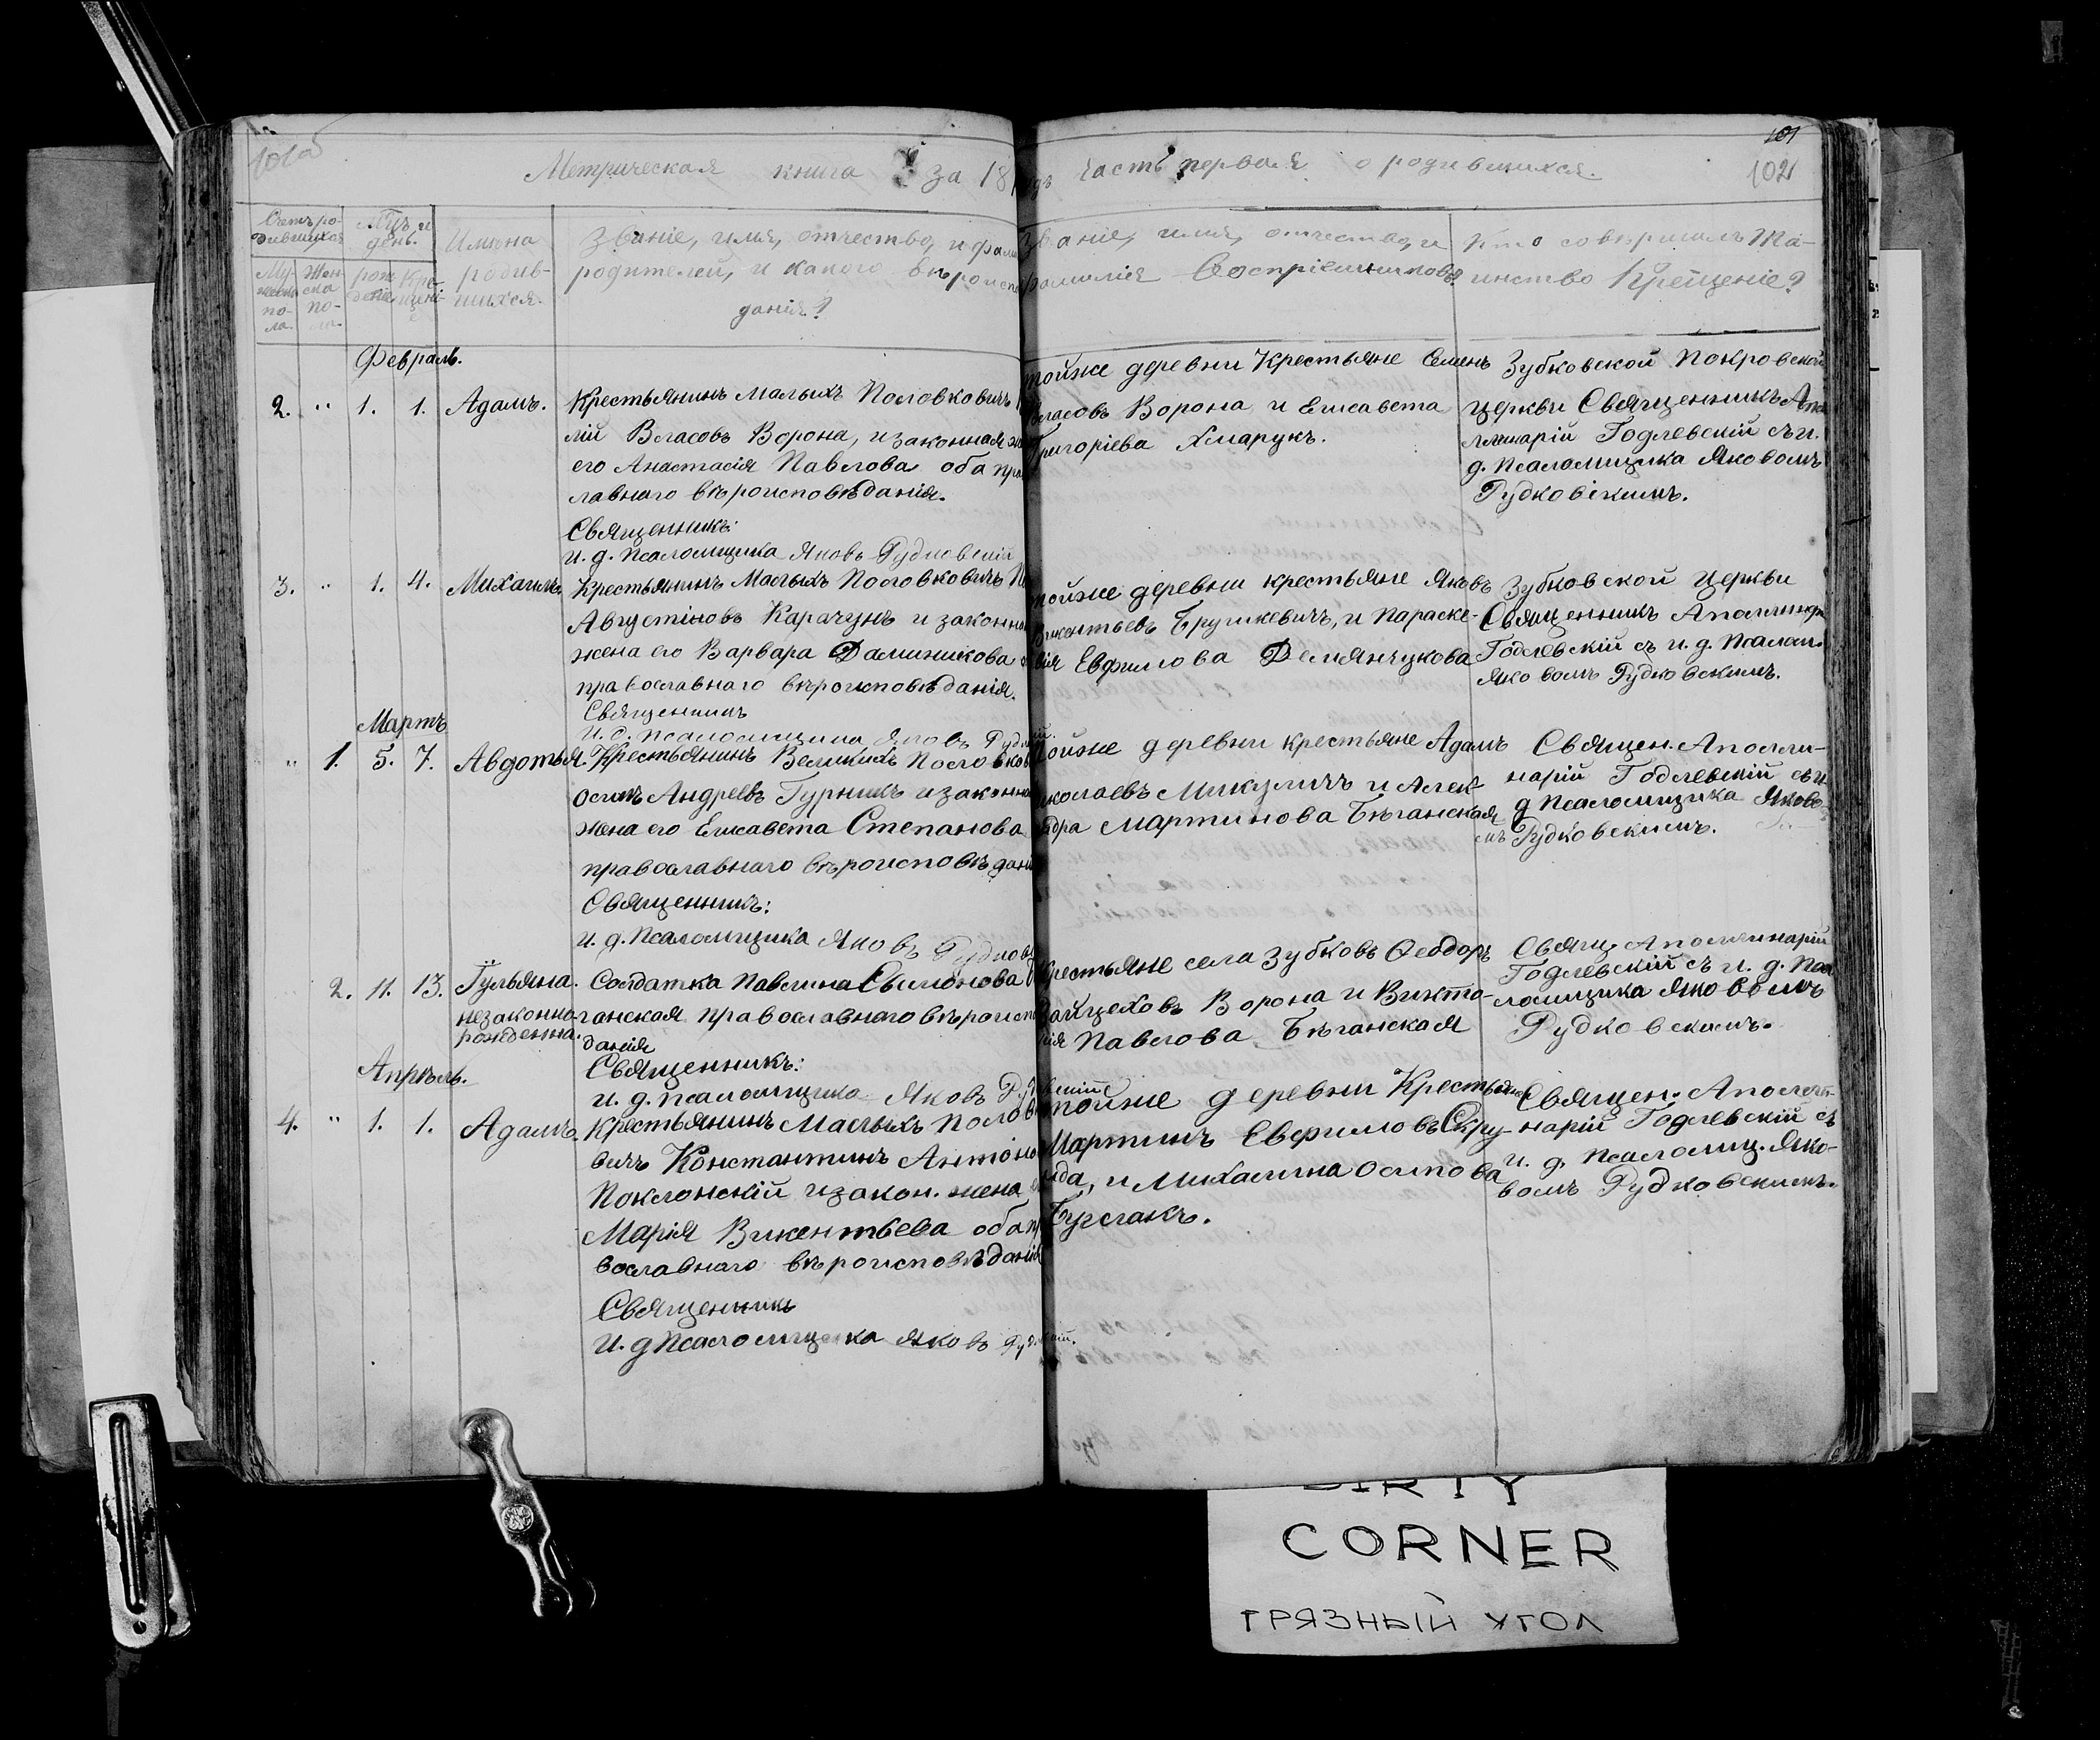 101об
101
102
Метрическая книга за 18
часть первая о родившихся.
Счетъ ро-
дившихся
Мцъ и
день.
Му-
жеска
по-
ла.
Жен-
ска
по-
ла.
рож
денія
Кре-
щені-
Имена
родив-
шихся.
Званіе, имя, отчество, и фами
родителей, и какого вѣроиспо
данія?
Званіе, имя, отчество, и
фамилія Воспріемниковъ
Кто совершалъ Та-
инство Крещеніе?
Февраль.
2. " 1. 1. Адамъ.
Крестьянинъ Малыхъ Половковичъ
лій Власовъ Ворона, и законная же
его Анастасія Павлова оба пра
лавнаго вѣроисповѣданія.
Священникъ:
и. д. Псаломщика Яковъ Рудковскій
тойже деревни Крестьяне Семенъ
Власовъ Ворона и Елисавета
Григоріева Хмарукъ.
Зубковской Покровской
церкви Священникъ Апо
линарій Годлевскій съ и.
д. Псаломщика Яковомъ
Рудковскимъ.
3. " 1. 4. Михаилъ.
Крестьянинъ Малыхъ Половковичъ
Августіновъ Карачунъ и законна
жена его Варвара Даминикова
православнаго вѣроисповѣданія.
Священникъ
и. д. Псаломщика Яковъ Рудк
тойже деревни крестьяне Яковъ
Викентьевъ Брушкевичъ, и Параске-
вія Евфимова Демянчукова
Зубковской церкви
Священникъ Аполлинар
Годлевскій съ и. д. Псалом.
Яковомъ Рудковскимъ.
Мартъ
" 1. 5. 7. Авдотья.
Крестьянинъ Великихъ Половков
Осипъ Андреевъ Гурникъ и законна
жена его Елисавета Степанова
православнаго вѣроисповѣдан
Священникъ:
и. д. Псаломщика Яковъ Рудков
тойже деревни крестьяне Адамъ
Николаевъ Микуличъ и Алек-
ндра Мартинова Бѣганская
Священ. Аполли-
нарій Годлевскій съ и
д Псаломщика Яково-
мъ Рудковскимъ.
2. 11. 13. Гульяна.
незаконно-
рожденна.
Солдатка Павлина Симонова
ганская православнаго вѣроисп
данія
Священникъ:
и. д. псаломщика Яковъ Рудковскій
Крестьяне села Зубковъ Ѳеодоръ
Войцеховъ Ворона и Викто-
рія Павлова Бѣганская
Свящ. Аполлинарій
Годлевскій съ и. д. Пса
ломщика Яковомъ
Рудковскимъ.
Апрѣль.
4. " 1. 1. Адамъ.
Крестьянинъ Малыхъ Полов
вичъ Константинъ Антоно
Поклонскій и закон. жена
Марія Викентьева оба пра
вославнаго вѣроисповѣданія
Священникъ
и. д Псаломщика Яковъ Руд
тойже деревни Крестьяне
Мартинъ Евфимовъ Скру-
нда, и Михалина Осипова
Бурлакъ.
Священ. Аполли-
нарій Годлевскій съ
и. д. Псаломщ. Яко-
вомъ Рудковскимъ.
DIRTY
CORNER
ГРЯЗНЫЙ УГОЛ